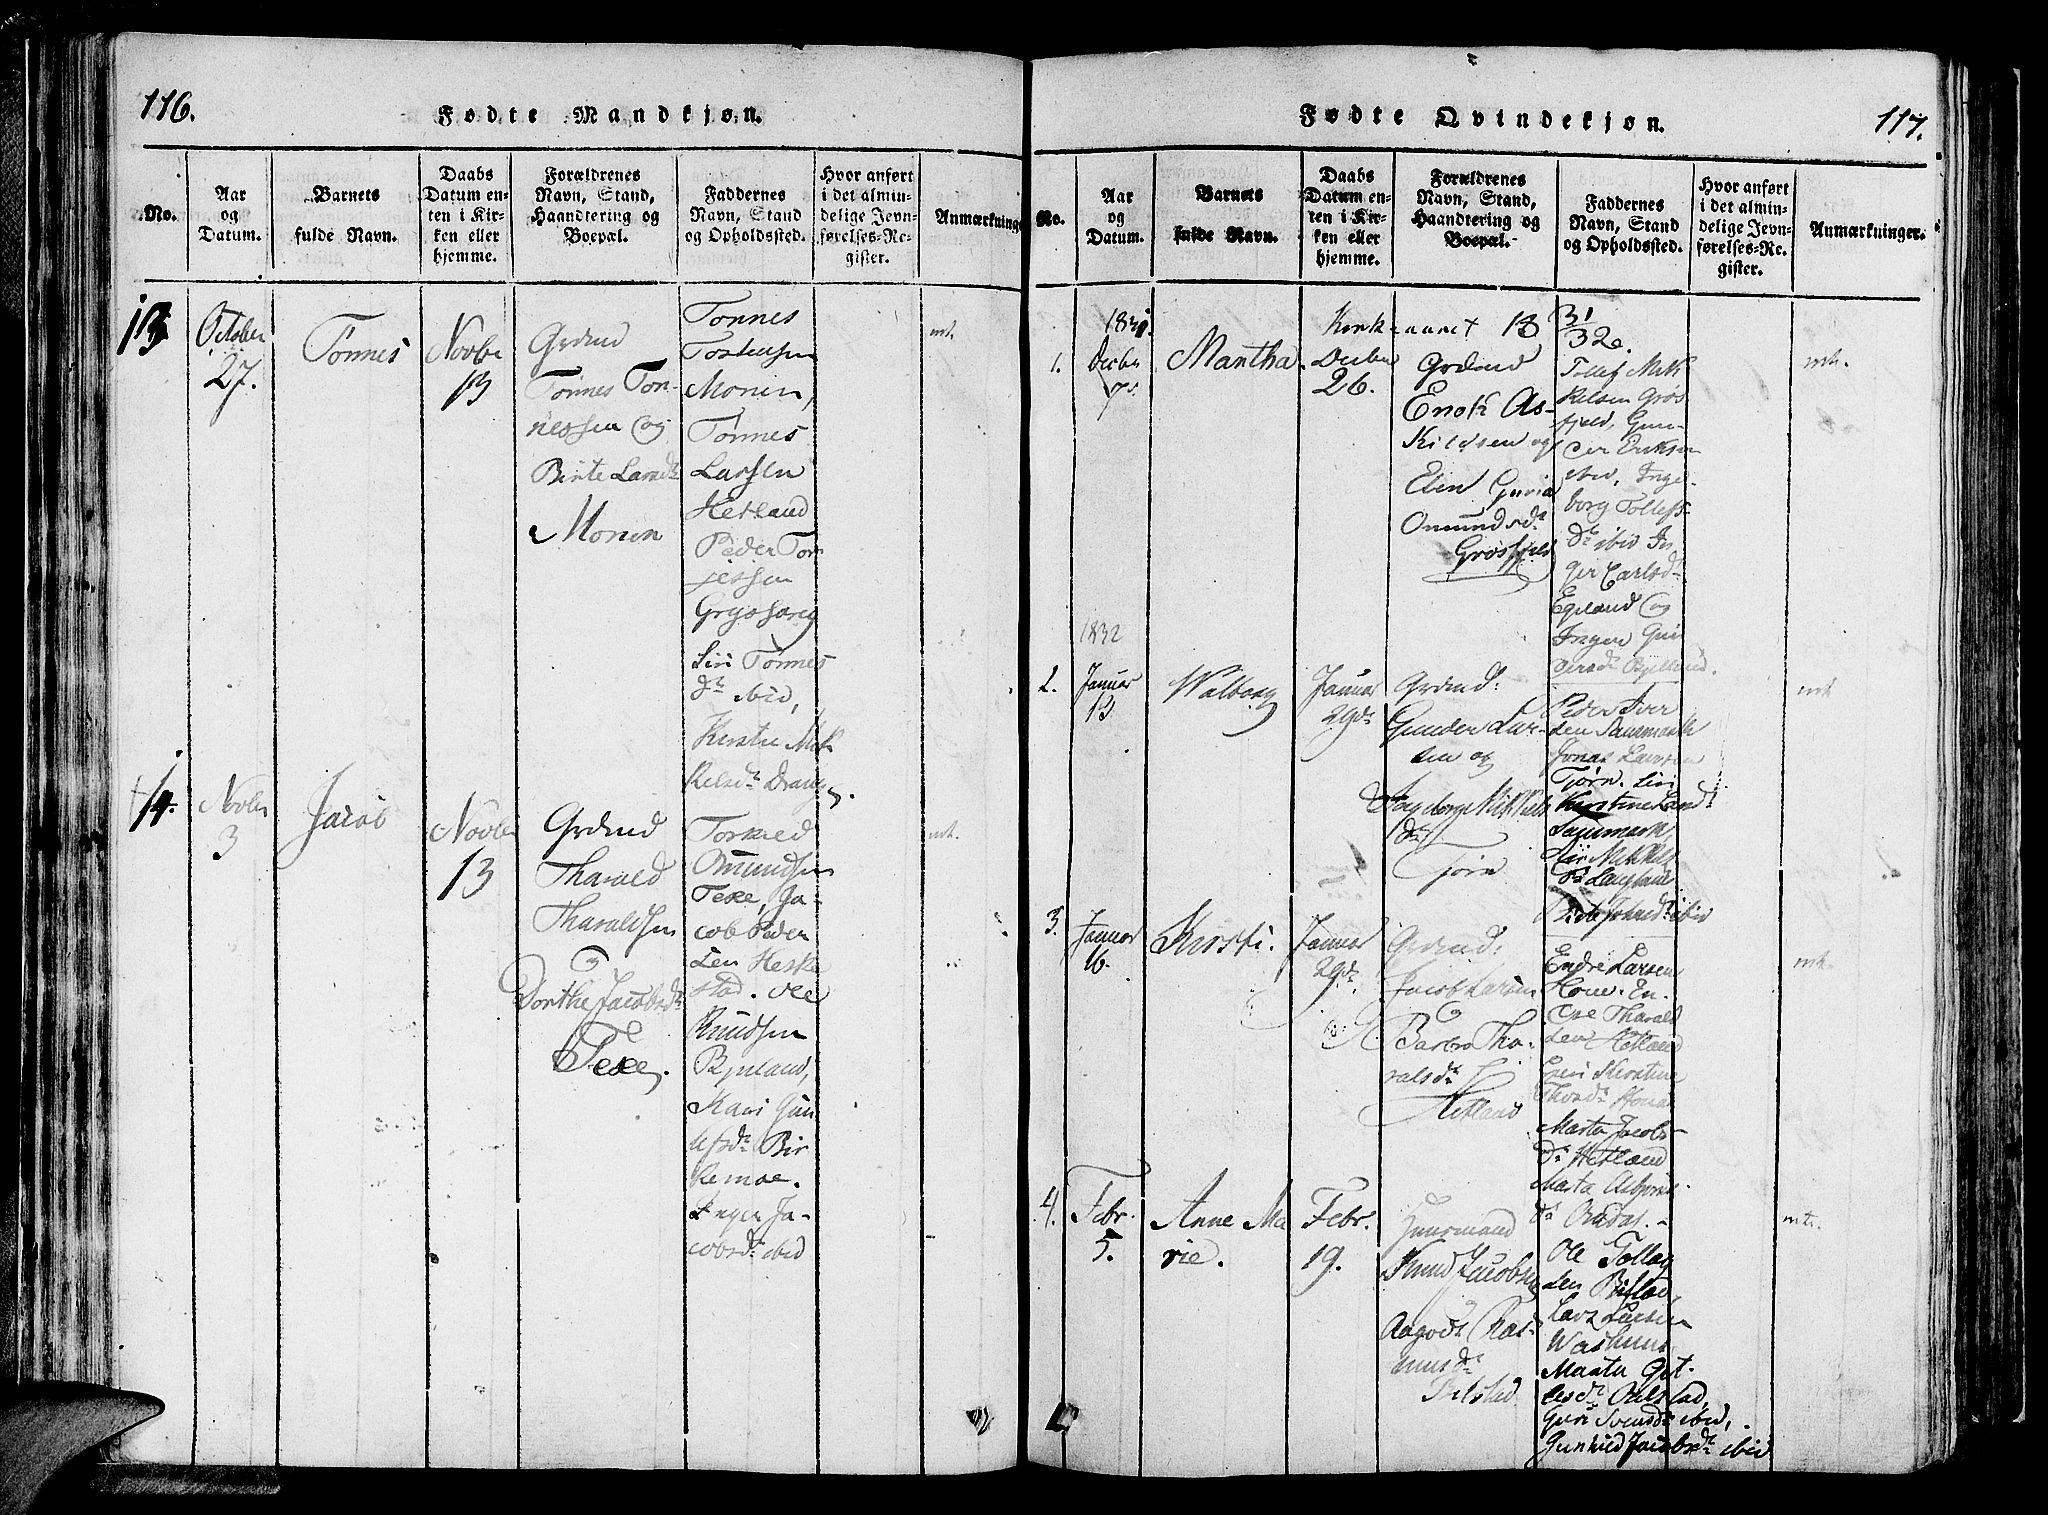 116.
Fødte Mandkjøn.
No.
Aar
og
Datum.
Barnets
fulde Navn.
Daabs
Datum en-
ten i Kir-
ken eller
hjemme.
Forældrenes
Navn, Stand,
Haandtering og
Boepæl.
Faddernes
Navn, Stand
og Opholdssted.
Hvor anført
i det almin-
delige Jevn-
førelses-Re-
gister.
Anmærkninger
13
October
27.
Tønnes
Novbr
13
Grdmd
Tønnes Tøn-
nessen og
Birte Larsdr
Monin
Tønnes
Tostensen
Monin,
Tønnes
Larssen
Hetland
Peder Tor
jessen
Siri Tønnes
dr ibid,
Kirstie Mik
kelsdr
14.
Novbr
3
Jacob
Novbr
13
Grdmd
Tharald
Tharaldsen
og
Dorthe Jacobsdr
Teke.
Torkild
Omundsen
Teke, Ja-
cob Peder
sen Heske
stad. Ole
Knudsen
Bjuland,
Kari Gun
ulfsdr Bir
kemoe.
Inger Ja-
cobsdr ibid
117.
Fødte Qvindekjøn.
No.
Aar
og
Datum.
Barnets
fulde Navn.
Daabs
Datum en-
ten i Kir-
ken eller
hjemme.
Forældrenes
Navn, Stand,
Haandtering og
Boepæl.
Faddernes
Navn, Stand
og Opholdssted.
Hvor anført
i det almin-
delige Jevn-
førelses-Re-
gister.
Anmærkninger.
1831.
Kirkeaaret 18 31/32.
1.
Decbr
7.
Martha
Decbr
26.
Grdmd
Enok As-
kildsen og
Elen Guria
Omundsdr
Grøsfjeld
Tollef Mik
kelsen Grøs
fjeld, Gun-
der Eriksen
ibid, Inge-
borg Tollefs-
dr ibid In
ger Carlsdr
Egeland og
Inger Gun
dersdr
1832
2.
Januar
13
Walborg
Januar
29de
Grdmd:
Gunder Lar-
sen og
Ingeborg Mikkels
dr
Tjørn
Peder Iver
sen Saurmark
Jonas Larsen
Tjørn. Siri
Saurmark,
Siri Mikkels
dr Langland
3.
Januar
16.
Kirsti.
Januar
29de
Grdmd:
Jacob Larsen
og
Barbro Tha-
ralsdr
Hetland
Endre Larsen
Hove. En-
dre Tharald
sen Hetland
Marta Jacobs-
dr Hetland
Marta Asbjørns-
4.
Febr.
5.
Anne Ma
rie.
Febr.
19.
Huusmand
Knud Jacobsen
og
Aagodt Ras-
musdr
Ole Tollag
sen
Lars Larsen
Marta Git-
lesdr
Guri Svensdr ibid,
Gunhild Jacobsdr ibid